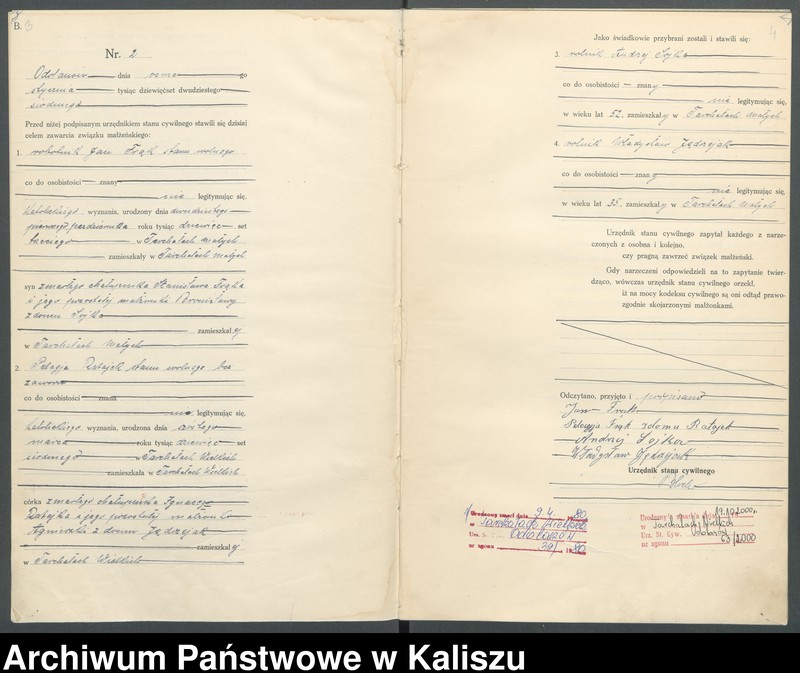 B. 3
Nr. 2
Odolanów dnia ósmego
stycznia tysiąc dziewięćset dwudziestego
siódmego
Przed niżej podpisanym urzędnikiem stanu cywilnego stawili się dzisiaj
celem zawarcia związku małżeńskiego:
1. robotnik Jan Frąk stanu wolnego
co do osobistości znany
nie legitymując się.
katolickiego wyznania, urodzony dnia dwudziestego
pierwszego października roku tysiąc dziewięć set
trzeciego w Tarchałach małych
zamieszkały w Tarchałach małych
syn zmarłego chałupnika Stanisława Frąka
i jego pozostałej małżonki Bronisławy
z domu Sójka
zamieszkałej
w Tarchałach Małych
2. Pelagja Ratajek stanu wolnego bez
zawodu
co do osobistości znana
nie legitymując się,
katolickiego wyznania, urodzona dnia
marca roku tysiąc dziewięć set
siódmego w Tarchałach Wielkich
zamieszkała w Tarchałach Wielkich
córka zmarłego chałupnika Ignacego
Ratajka i jego pozostałej małżonki
Agnieszki z domu Jędrzejak
zamieszkałej
w Tarchałach Wielkich
4
Jako świadkowie przybrani zostali i stawili się:
3. rolnik Andrzej Sojka
co do osobistości znany
nie legitymując się,
w wieku lat 52. zamieszkały w Tarchałach Małych
4. rolnik Władysław Jędrzejak
co do osobistości znany
nie legitymując się,
w wieku lat 35. zamieszkały w Tarchałach Małych
Urzędnik stanu cywilnego zapytał każdego z narze-
czonych z osobna i kolejno,
czy pragną zawrzeć związek małżeński.
Gdy narzeczeni odpowiedzieli na to zapytanie twier-
dząco, wówczas urzędnik stanu cywilnego orzekł,
iż na mocy kodeksu cywilnego są oni odtąd prawo-
zgodnie skojarzonymi małżonkami.
Odczytano, przyjęto i podpisano
Jan Frąk
Pelagja Frąk zdomu Ratajek
Andrzej Sojka
Władysław Jędrzejak
Urzędnik stanu cywilnego
Urodzony zmarł dnia 9.4. 1980
w Tarchałach Wielkich
Urz. S. C. Odolanów
nr zgonu 39/1980
Urodzony/a zmarł/a dnia 19.10.2000r.
w Tarchałach Wielkich
Urz. St. Cyw. Odolanów
nr zgonu 63/2000
Archiwum Państwowe w Kaliszu